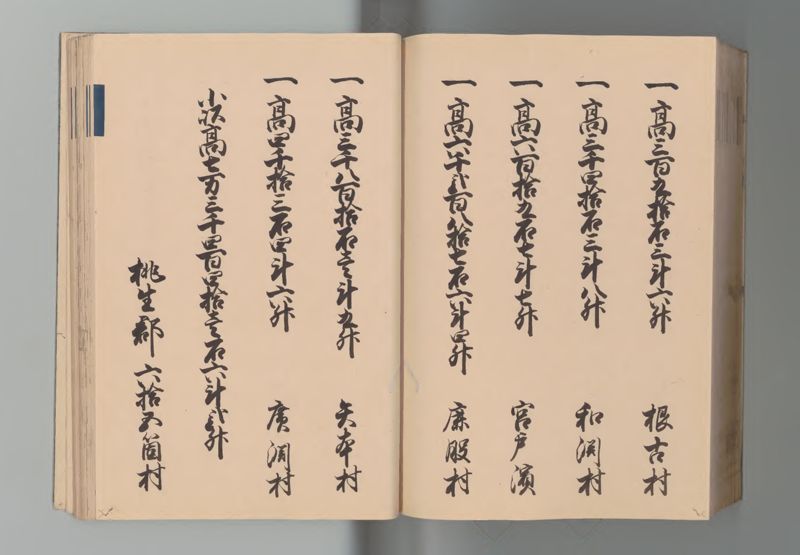 一 高三百五拾石三斗六升 根古村
一 高三千四拾石三斗八升 和渕村
一 高六百拾五石七斗七升 宮戸濱
一 高六千弐百八拾七石六斗四升 鹿股村
一 高三千八百拾石壱斗五升 矢本村
一 高四千拾三石四斗六升 廣渕村
小以高七万三千四百四拾壱石六斗弐升
桃生郡 六拾五箇村